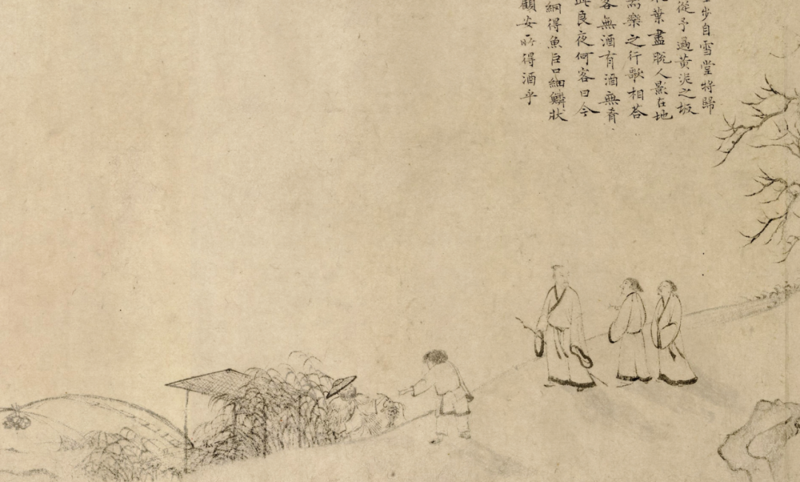 步自雪堂將歸
從予過黃泥之坂
葉盡脫人影在地
樂之行歌相答
客無酒有酒無肴
良夜何客曰今
網得魚巨口細鱗狀
顧安所得酒乎